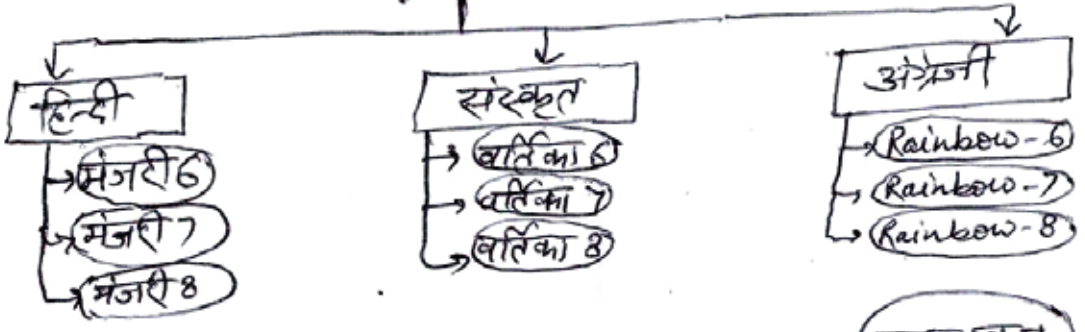 हिन्दी
मंजरी 6
मंजरी 7
मंजरी 8
संस्कृत
वर्तिका 6
वर्तिका 7
वर्तिका 8
अंग्रेजी
Rainbow-6
Rainbow-7
Rainbow-8